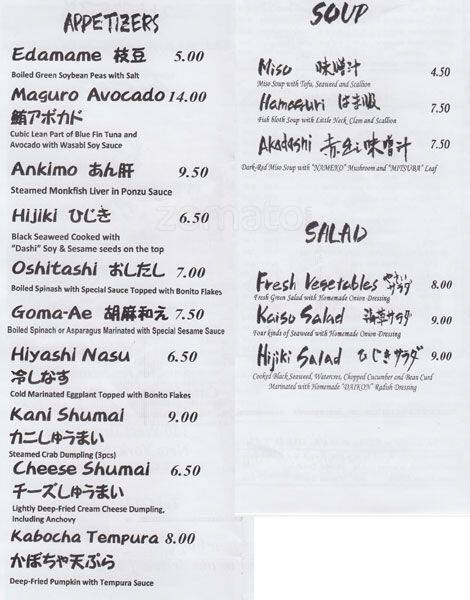 APPETIZERS
Edamame 枝豆 5.00
Boiled Green Soybean Peas with Salt
Maguro Avocado 14.00
鮪アボカド
Cubic Lean Part of Blue Fin Tuna and
Avocado with Wasabi Soy Sauce
Ankimo あん肝 9.50
Steamed Monkfish Liver in Ponzu Sauce
Hijiki ひじき 6.50
Black Seaweed Cooked with
"Dashi" Soy & Sesame seeds on the top
Oshitashi おしたし 7.00
Boiled Spinash with Special Sauce Topped with Bonito Flakes
Goma-Ae 胡麻和え 7.50
Boiled Spinach or Asparagus Marinated with Special Sesame Sauce
Hiyashi Nasu 6.50
冷しなす
Cold Marinated Eggplant Topped with Bonito Flakes
Kani Shumai 9.00
カニしゅうまい
Steamed Crab Dumpling (3pcs)
Cheese Shumai 6.50
チーズしゅうまい
Lightly Deep-Fried Cream Cheese Dumpling,
Including Anchovy
Kabocha Tempura 8.00
かぼちゃ天ぷら
Deep-Fried Pumpkin with Tempura Sauce
SOUP
Miso 味噌汁 4.50
Miso Soup with Tofu, Seaweed and Scallion
Hamaguri はま吸 7.50
Fish bloth Soup with Little Neck Clam and Scallion
Akadashi 赤出し味噌汁 7.50
Dark-Red Miso Soup with "NAMEKO" Mushroom and "MITSUBA" Leaf
SALAD
Fresh Vegetables やさいサラダ 8.00
Fresh Green Salad with Homemade Onion Dressing
Kaiso Salad 海草サラダ 9.00
Four kinds of Seaweed with Homemade Onion Dressing
Hijiki Salad ひじきサラダ 9.00
Cooked Black Seaweed, Watercres, Chopped Cucumber and Bean Curd
Marinated with Homemade "DAIKON" Radish Dressing
zomato